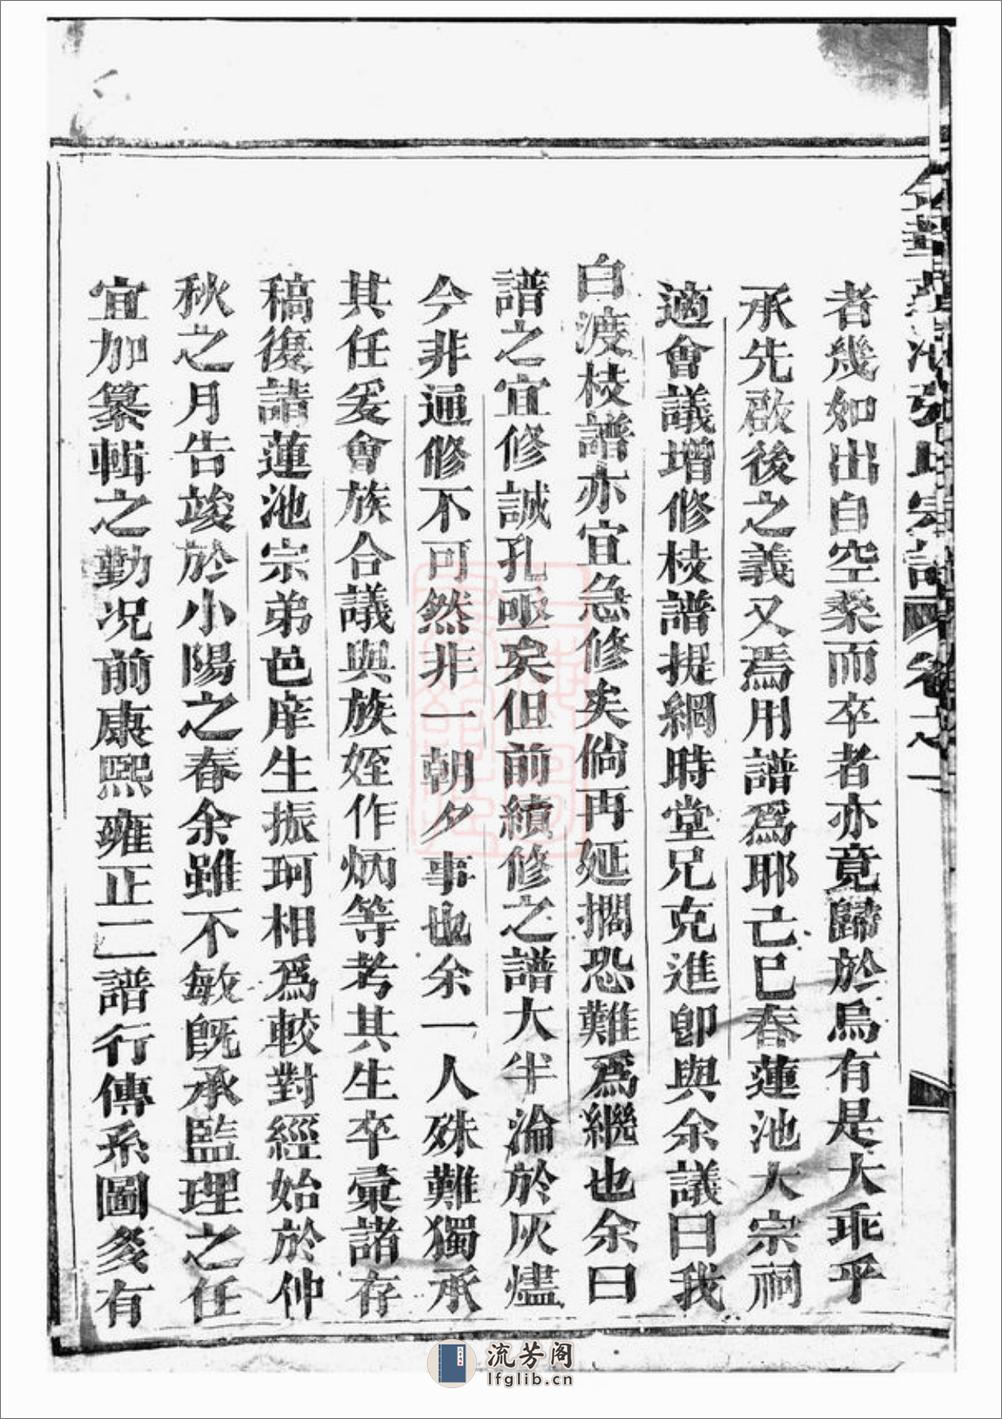 蓮池張氏宗譜 卷之一
者幾如出自空桑而卒者亦竟歸於烏有是大乖乎
承先啟後之義又焉用譜爲耶己巳春蓮池大宗祠
適會議增修枝譜提綱時堂兄克進卽與余議曰我
白渡枝譜亦宜急修矣倘再延擱恐難爲繼也余曰
譜之宜修誠孔亟矣但前續修之譜大半淪於灰燼
今非通修不可然非一朝夕事也余一人殊難獨承
其任爰會族合議與族姪作炳等考其生卒彙諸存
稿復請蓮池宗弟邑庠生振珂相爲較對經始於仲
秋之月告竣於小陽之春余雖不敏旣承監理之任
宜加纂輯之勤况前康熙雍正二譜行傳系圖多有
流芳阁
lfglib.cn